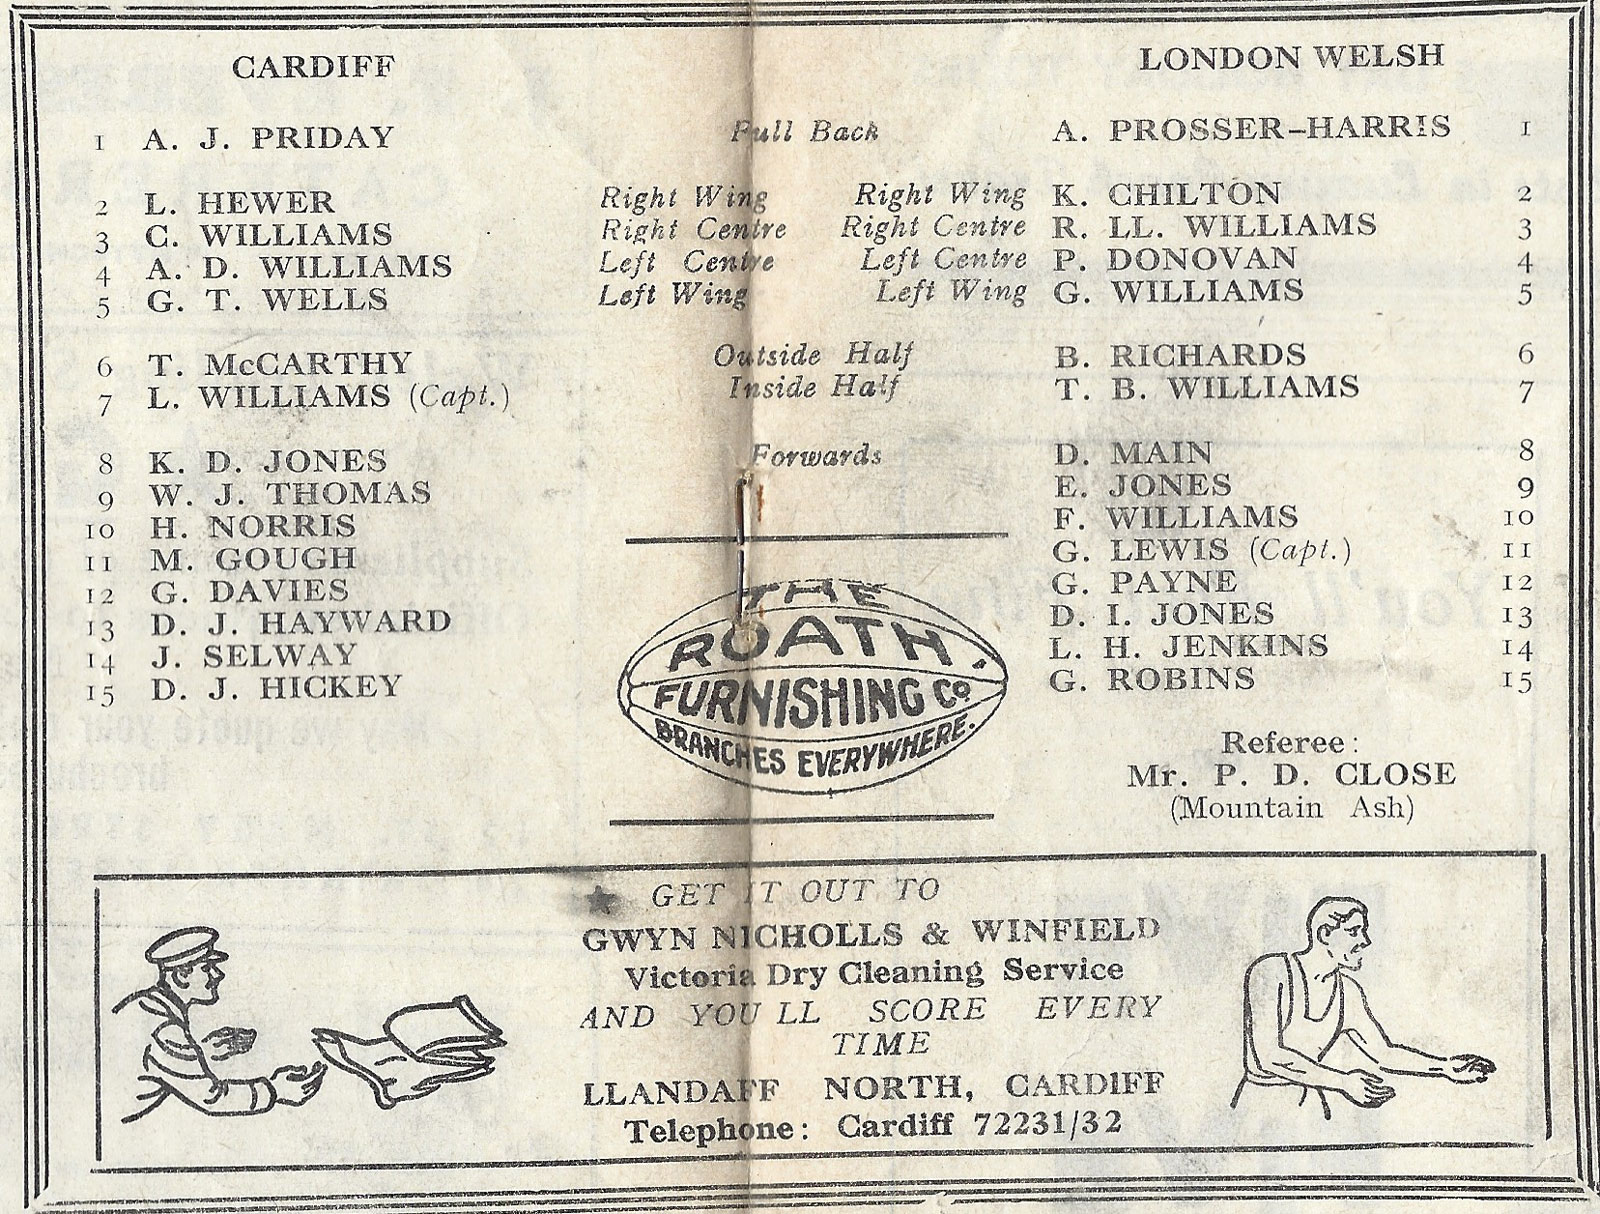 CARDIFF LONDON WELSH
1 A. J. PRIDAY Full Back A. PROSSER-HARRIS 1
2 L. HEWER Right Wing Right Wing K. CHILTON 2
3 C. WILLIAMS Right Centre Right Centre R. LL. WILLIAMS 3
4 A. D. WILLIAMS Left Centre Left Centre P. DONOVAN 4
5 G. T. WELLS Left Wing Left Wing G. WILLIAMS 5
6 T. McCARTHY Outside Half B. RICHARDS 6
7 L. WILLIAMS (Capt.) Inside Half T. B. WILLIAMS 7
8 K. D. JONES Forwards D. MAIN 8
9 W. J. THOMAS E. JONES 9
10 H. NORRIS F. WILLIAMS 10
11 M. GOUGH G. LEWIS (Capt.) 11
12 G. DAVIES G. PAYNE 12
13 D. J. HAYWARD D. I. JONES 13
14 J. SELWAY L. H. JENKINS 14
15 D. J. HICKEY G. ROBINS 15
THE
ROATH
FURNISHING Co
BRANCHES EVERYWHERE.
Referee:
Mr. P. D. CLOSE
(Mountain Ash)
★ GET IT OUT TO
GWYN NICHOLLS & WINFIELD
Victoria Dry Cleaning Service
AND YOU LL SCORE EVERY
TIME
LLANDAFF NORTH, CARDIFF
Telephone: Cardiff 72231/32